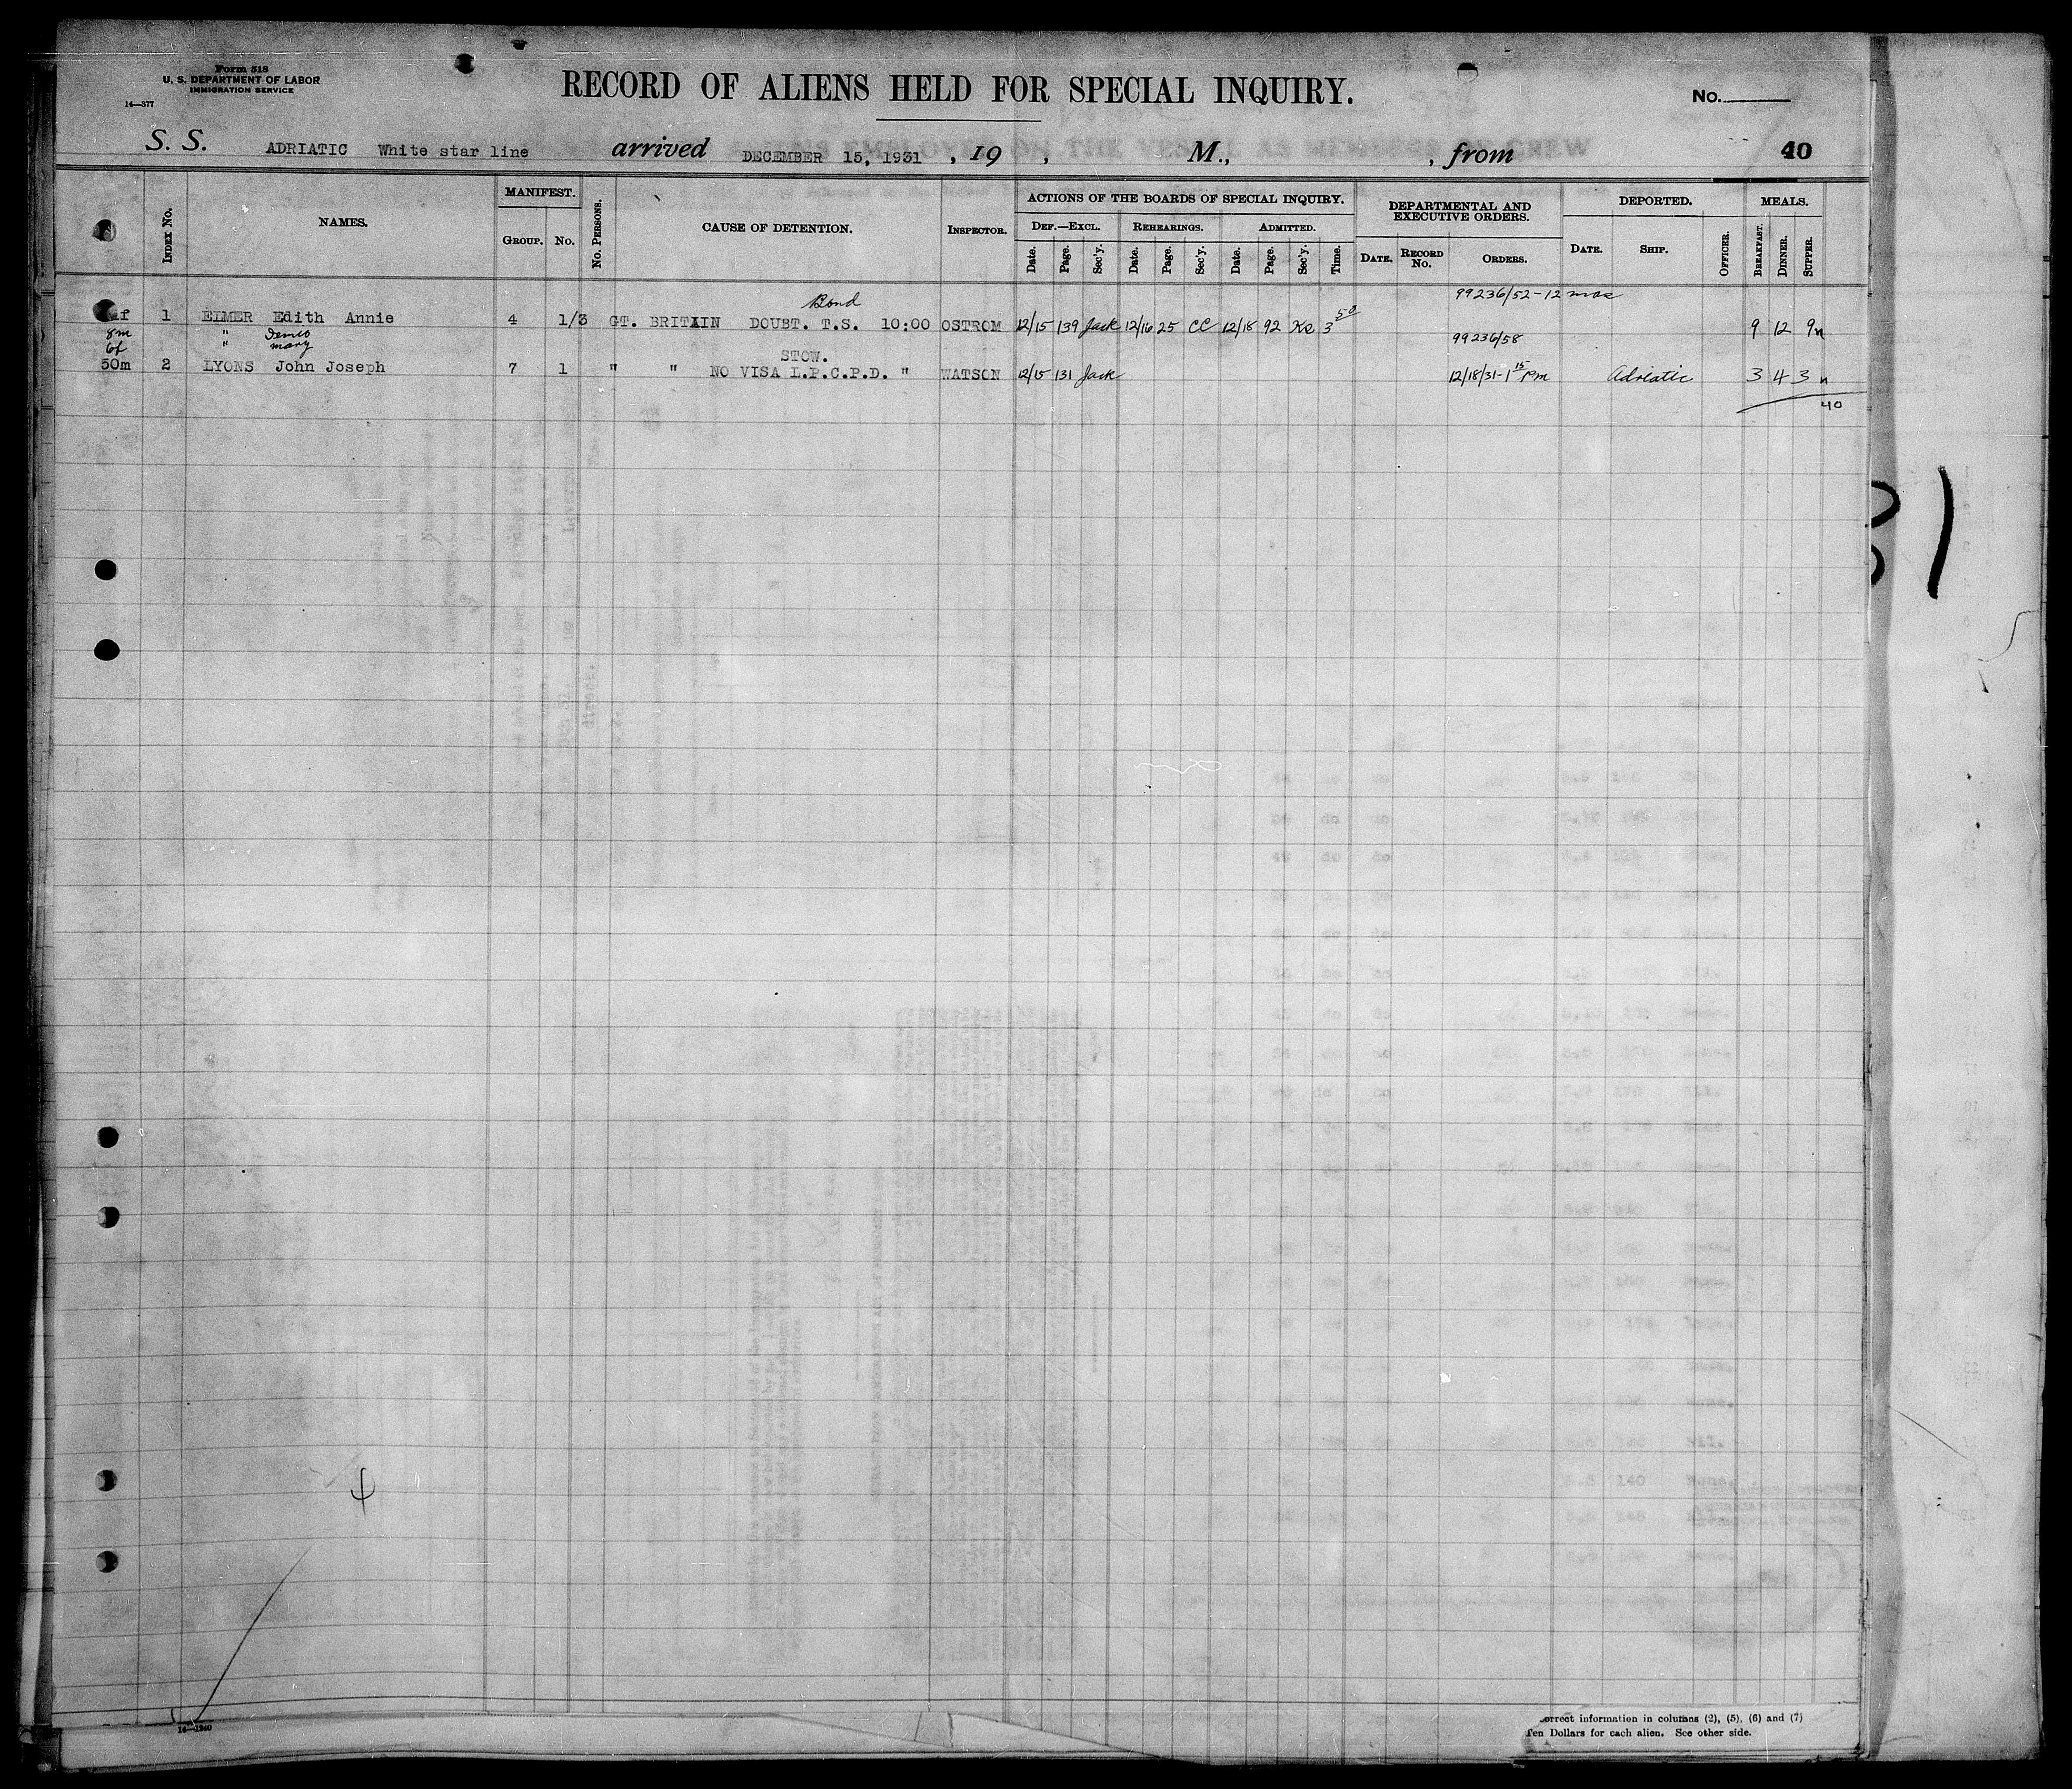 Form 518
U. S. DEPARTMENT OF LABOR
IMMIGRATION SERVICE
14—377
RECORD OF ALIENS HELD FOR SPECIAL INQUIRY.
No.
S. S. ADRIATIC White star line arrived DECEMBER 15, 1931 , 19 , M., , from 40
INDEX No. NAMES. MANIFEST. GROUP. No. No. PERSONS. CAUSE OF DETENTION. INSPECTOR. ACTIONS OF THE BOARDS OF SPECIAL INQUIRY. DEPARTMENTAL AND EXECUTIVE ORDERS. DEPORTED. MEALS.
DEF.—EXCL. REHEARINGS. ADMITTED.
Date. Page. Sec'y. Date. Page. Sec'y. Date. Page. Sec'y. Time. DATE. RECORD No. ORDERS. DATE. SHIP. OFFICER. BREAKFAST. DINNER. SUPPER.
Bond 99236/52-12 mos
1 EIMER Edith Annie 4 1/3 GT. BRITAIN DOUBT. T.S. 10:00 OSTROM 12/15 139 Jack 12/16 25 CC 12/18 92 3 50 9 12 9 n
8m " Denis 99236/58
6f " mary
STOW.
50m 2 LYONS John Joseph 7 1 " " NO VISA L.P.C.P.D. " WATSON 12/15 131 Jack 12/18/31-1 15 Pm Adriatic 3 4 3 n
40
14—1240
orrect information in columns (2), (5), (6) and (7)
Ten Dollars for each alien. See other side.